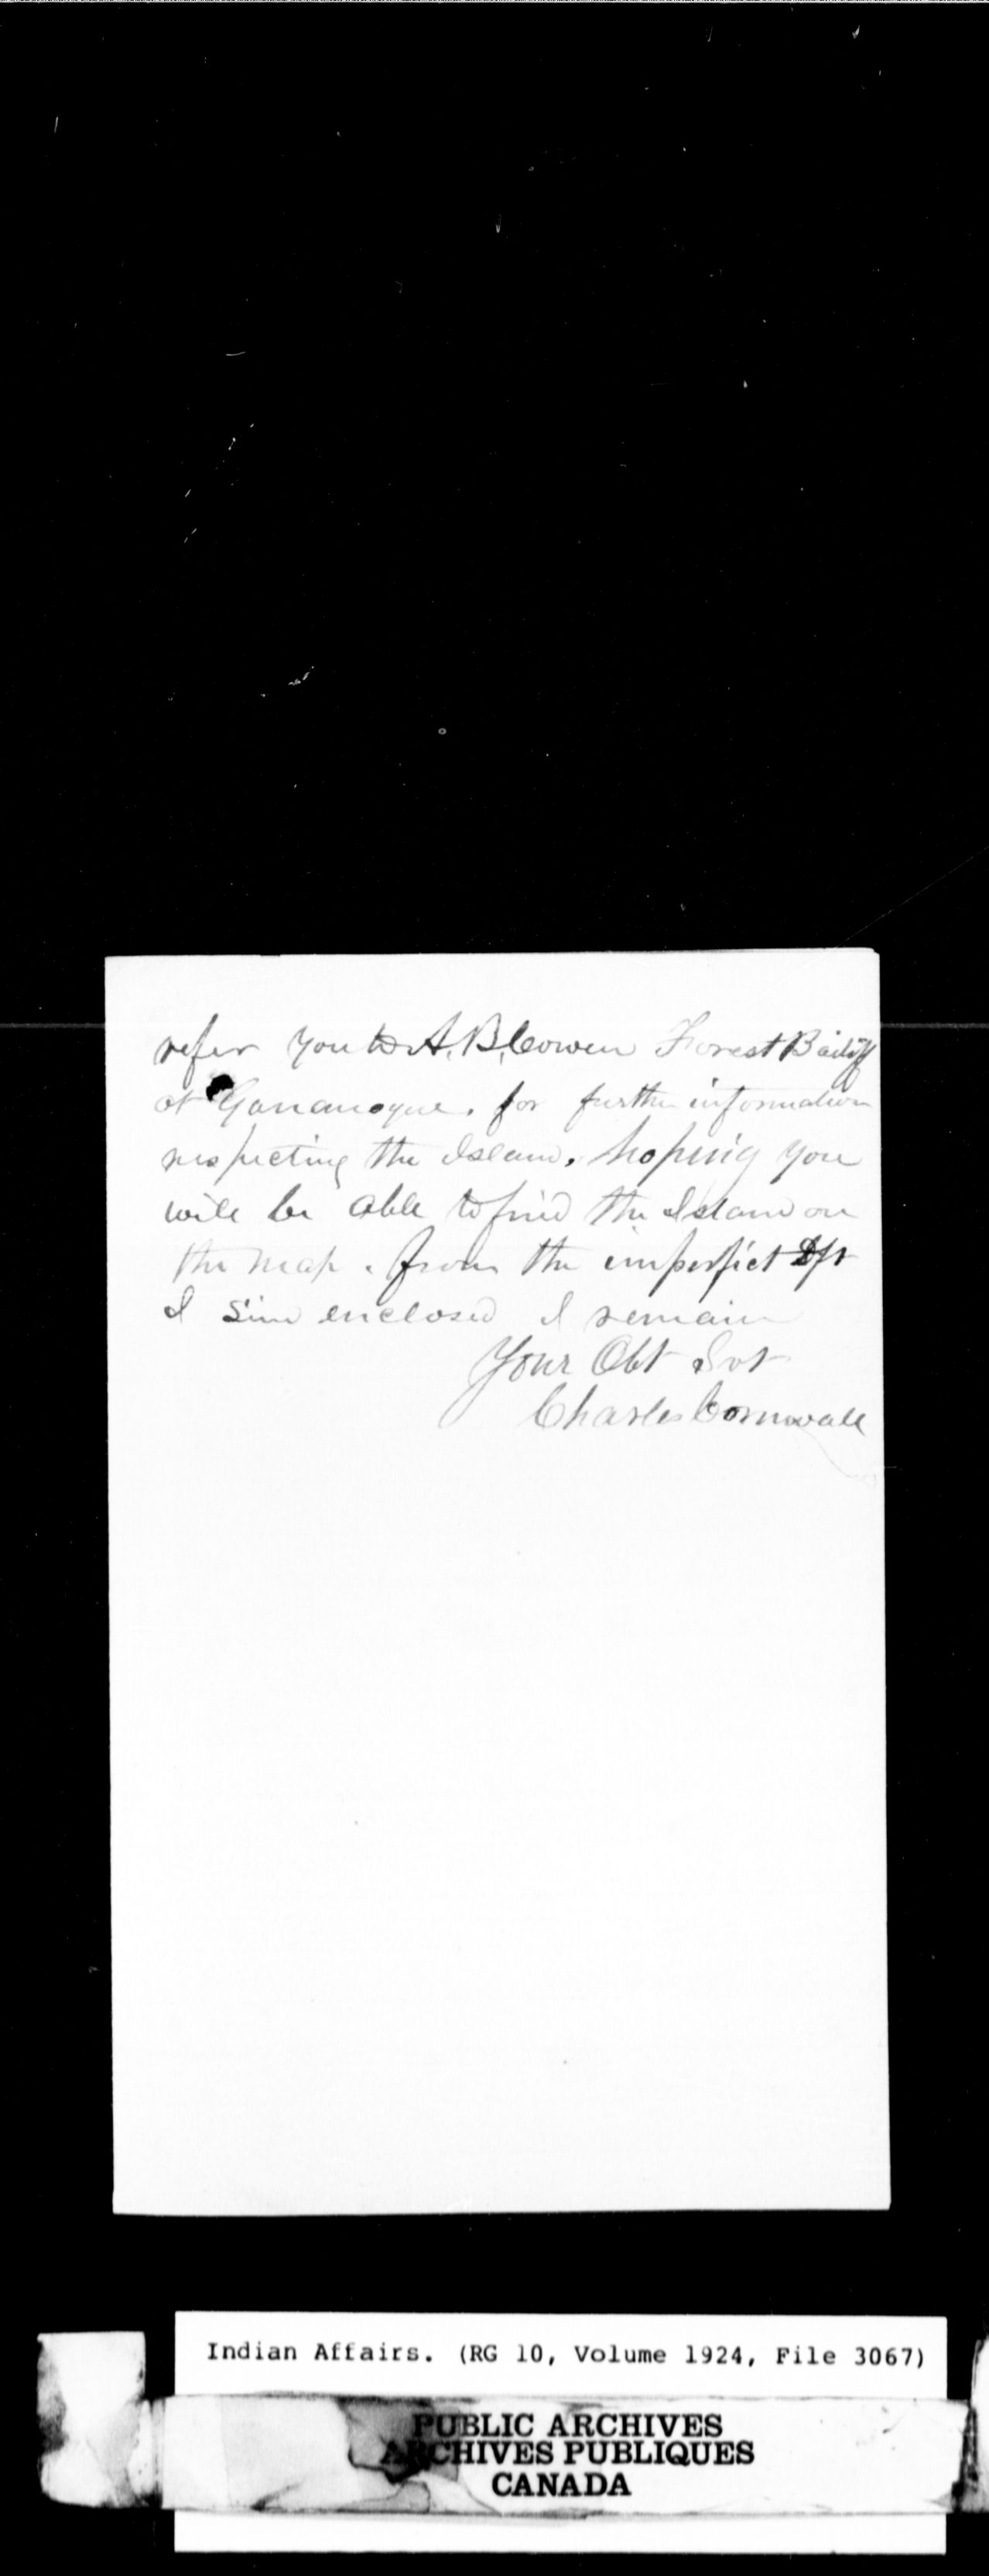 refer you to A. B. Cowen Forest Bailiff
at Gananoque. for further information
respecting the Island. hoping you
will be able to find the Island on
the map. from the imperfect
I enclosed I remain
Your Obt Svt
Charles Cornwall
Indian Affairs. (RG 10, Volume 1924, File 3067)
PUBLIC ARCHIVES
ARCHIVES PUBLIQUES
CANADA